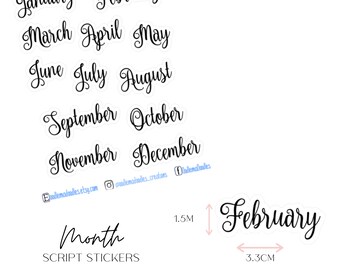 January February
March April May
June July August
September October
November December
1.5M
February
3.3CM
Month
SCRIPT STICKERS